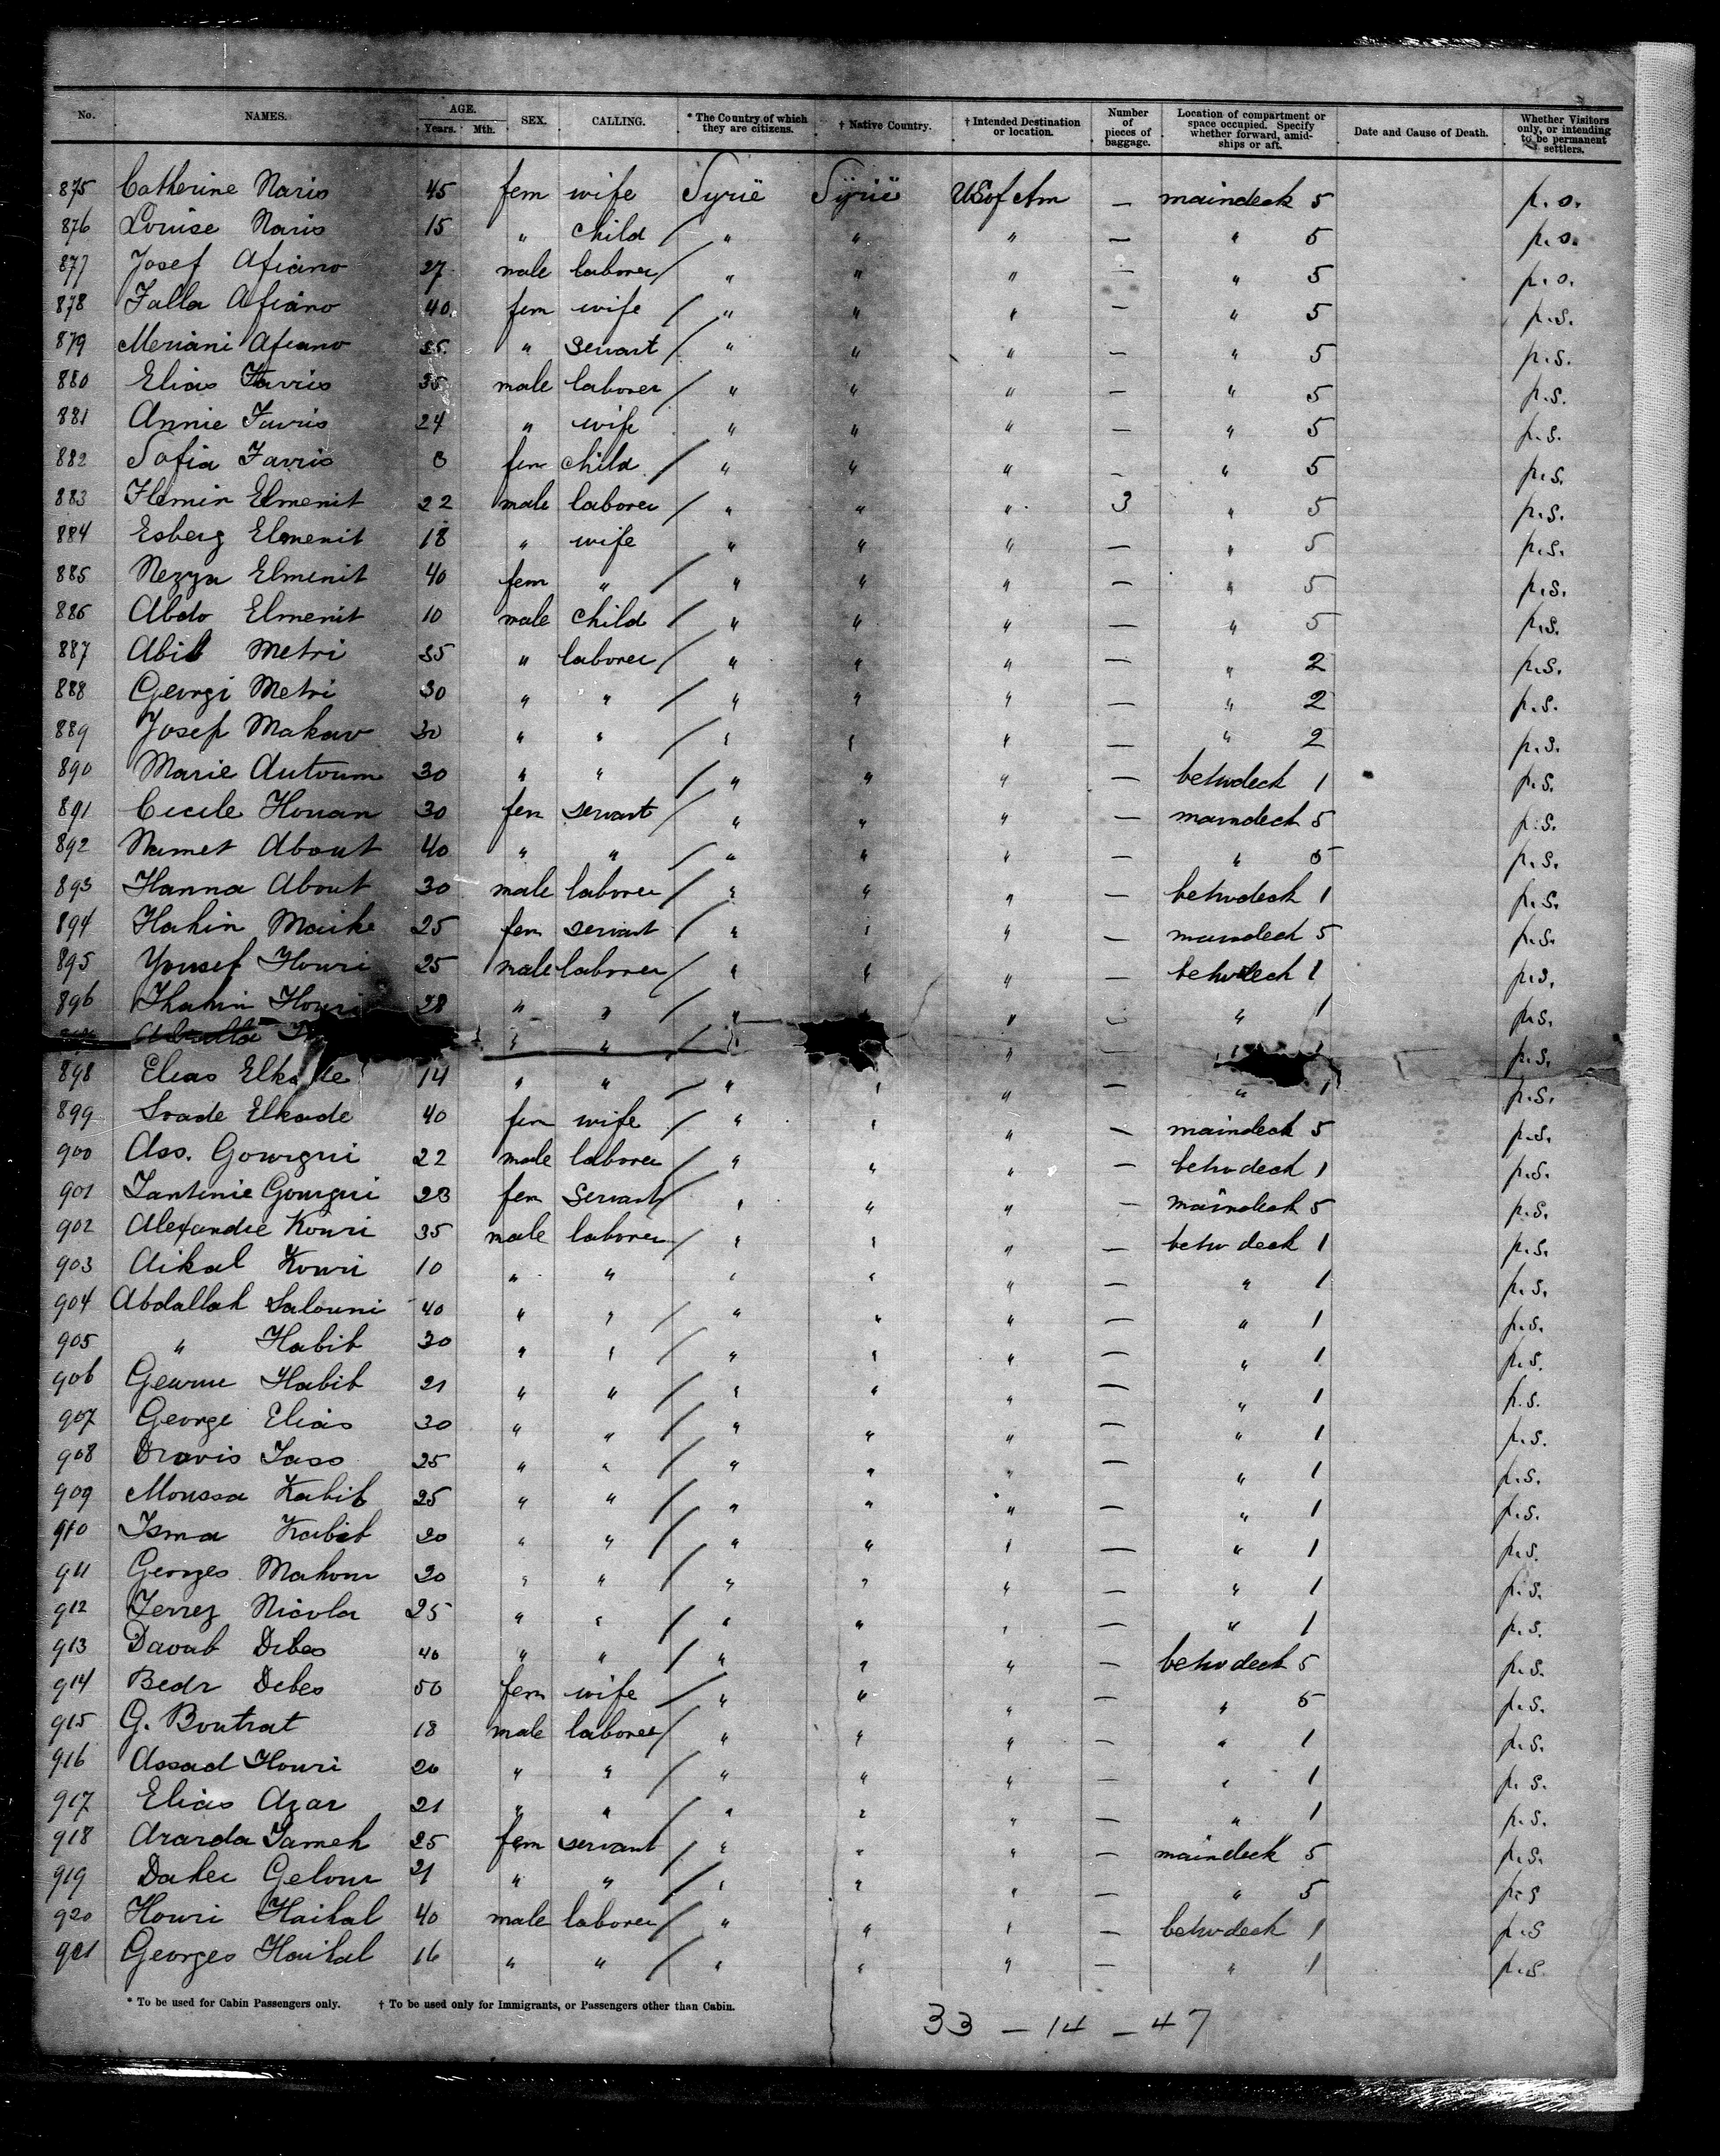 No. NAMES. AGE. Years. Mth. SEX. CALLING. * The Country of which they are citizens. † Native Country. † Intended Destination or location. Number of pieces of baggage. Location of compartment or space occupied. Specify whether forward, amidships or aft. Date and Cause of Death. Whether Visitors only, or intending to be permanent settlers.
875 Catherine Naris 45 fem wife Syrië Syrië USof Am — maindeck 5 p.s.
876 Louise Naris 15 " child / " " " — " 5 p.s.
877 Josef Afiano 27 male laborer / " " " — " 5 p.s.
878 Falla Afiano 40 fem wife / " " " — " 5 p.s.
879 Meriani Afiano 35 " servant / " " " — " 5 p.s.
880 Elias Favris 35 male laborer / " " " — " 5 p.s.
881 Annie Favris 24 " wife " " " — " 5 p.s.
882 Sofia Favris 8 fem child / " " " — " 5 p.s.
883 Flemin Elmenit 22 male laborer / " " " 3 " 5 p.s.
884 Esberg Elmenit 18 " wife " " " — " 5 p.s.
885 Nezya Elmenit 40 fem " / " " " — " 5 p.s.
886 Abdo Elmenit 10 male child / " " " — " 5 p.s.
887 Abib Metri 35 " laborer / " " " — " 2 p.s.
888 Georgi Metri 30 " " / " " " — " 2 p.s.
889 Josef Makav 30 " " / " " " — " 2 p.s.
890 Marie Autoum 30 " " / " " " — betwdeck 1 p.s.
891 Cecile Houan 30 fem servant / " " " — maindeck 5 p.s.
892 Namet About 40 " " / " " " — " 5 p.s.
893 Hanna About 30 male laborer / " " " — betwdeck 1 p.s.
894 Hakin Maike 25 fem servant / " " " — maindeck 5 p.s.
895 Yousef Houri 25 male laborer / " " " — betwdeck 1 p.s.
896 Thahin Houri 28 " " / " " " — " 1 p.s.
Abdalla " " / " — 1 p.s.
898 Elias Elkade 14 " " / " " " — " 1 p.s.
899 Svade Elkade 40 fem wife / " " " — maindeck 5 p.s.
900 Ass. Gourgui 22 male laborer / " " " — betwdeck 1 p.s.
901 Tantinie Gourgui 23 fem Servant / " " " — maindeck 5 p.s.
902 Alexandre Kouri 35 male laborer / " " " — betwdeck 1 p.s.
903 Aikal Kouri 10 " " " " " — " 1 p.s.
904 Abdallah Salouni 40 " " / " " " — " 1 p.s.
905 " Habib 30 " " / " " " — " 1 p.s.
906 Geurne Habib 21 " " / " " " — " 1 p.s.
907 George Elias 30 " " / " " " — " 1 p.s.
908 Dravis Tass 25 " " / " " " — " 1 p.s.
909 Moussa Kabib 25 " " / " " " — " 1 p.s.
910 Isma Kabib 20 " " / " " " — " 1 p.s.
911 Georges Mahour 20 " " / " " " — " 1 p.s.
912 Ferrez Nicola 25 " " / " " " — " 1 p.s.
913 Davub Debes 40 " " / " " " — betwdeck 5 p.s.
914 Bedr Debes 50 fem wife / " " " — " 5 p.s.
915 G. Boutrat 18 male laborer / " " " — " 1 p.s.
916 Assad Houri 20 " " / " " " — " 1 p.s.
917 Elias Azar 21 " " / " " " — " 1 p.s.
918 Ararda Tameh 25 fem servant / " " " — maindeck 5 p.s.
919 Daher Gelour 21 " " / " " " — " 5 p.s
920 Houri Haikal 40 male laborer / " " " — betwdeck 1 p.s
921 Georges Haikal 16 " " / " " " — " 1 p.s.
* To be used for Cabin Passengers only. † To be used only for Immigrants, or Passengers other than Cabin.
33 — 14 — 47